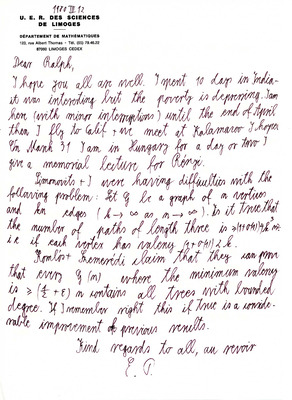 1980 III 12
U. E. R. DES SCIENCES
DE LIMOGES
DÉPARTEMENT DE MATHÉMATIQUES
123, rue Albert Thomas - Tél. (55)
87060 LIMOGES CEDEX
Dear Ralph,
I hope you all are well. I spent 10 days in India
it was interesting but the poverty is depressing. I am
here (with minor interruptions) until the end of April
then I fly to Calif + we meet at Kalamazoo I hope
On March 31 I am in Hungary for a day or two I
give a memorial lecture for Rényi.
Simonovits + I were having difficulties with the
following problem: Let G be a graph of n vertices
and kn edges (k → ∞ as n → ∞). Is it true that
the number of paths of length three is
i.e. if each vertex has valency
Komlós + Szemerédi claim that they can prove
that every G(n) where the minimum valency
is ≥ (1/2 + ε) n contains all trees with bounded
degree. If I remember right this if true is a conside-
rable improvement of previous results.
Kind regards to all, au revoir
E. P.